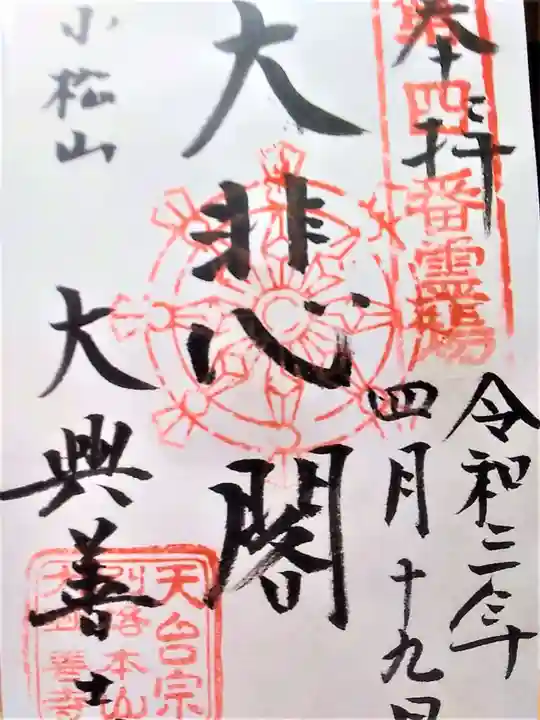 奉拝
第四番霊場
令和三年
四月十九日
大悲閣
小松山
大興善寺
天台宗
別格本山
大興善寺